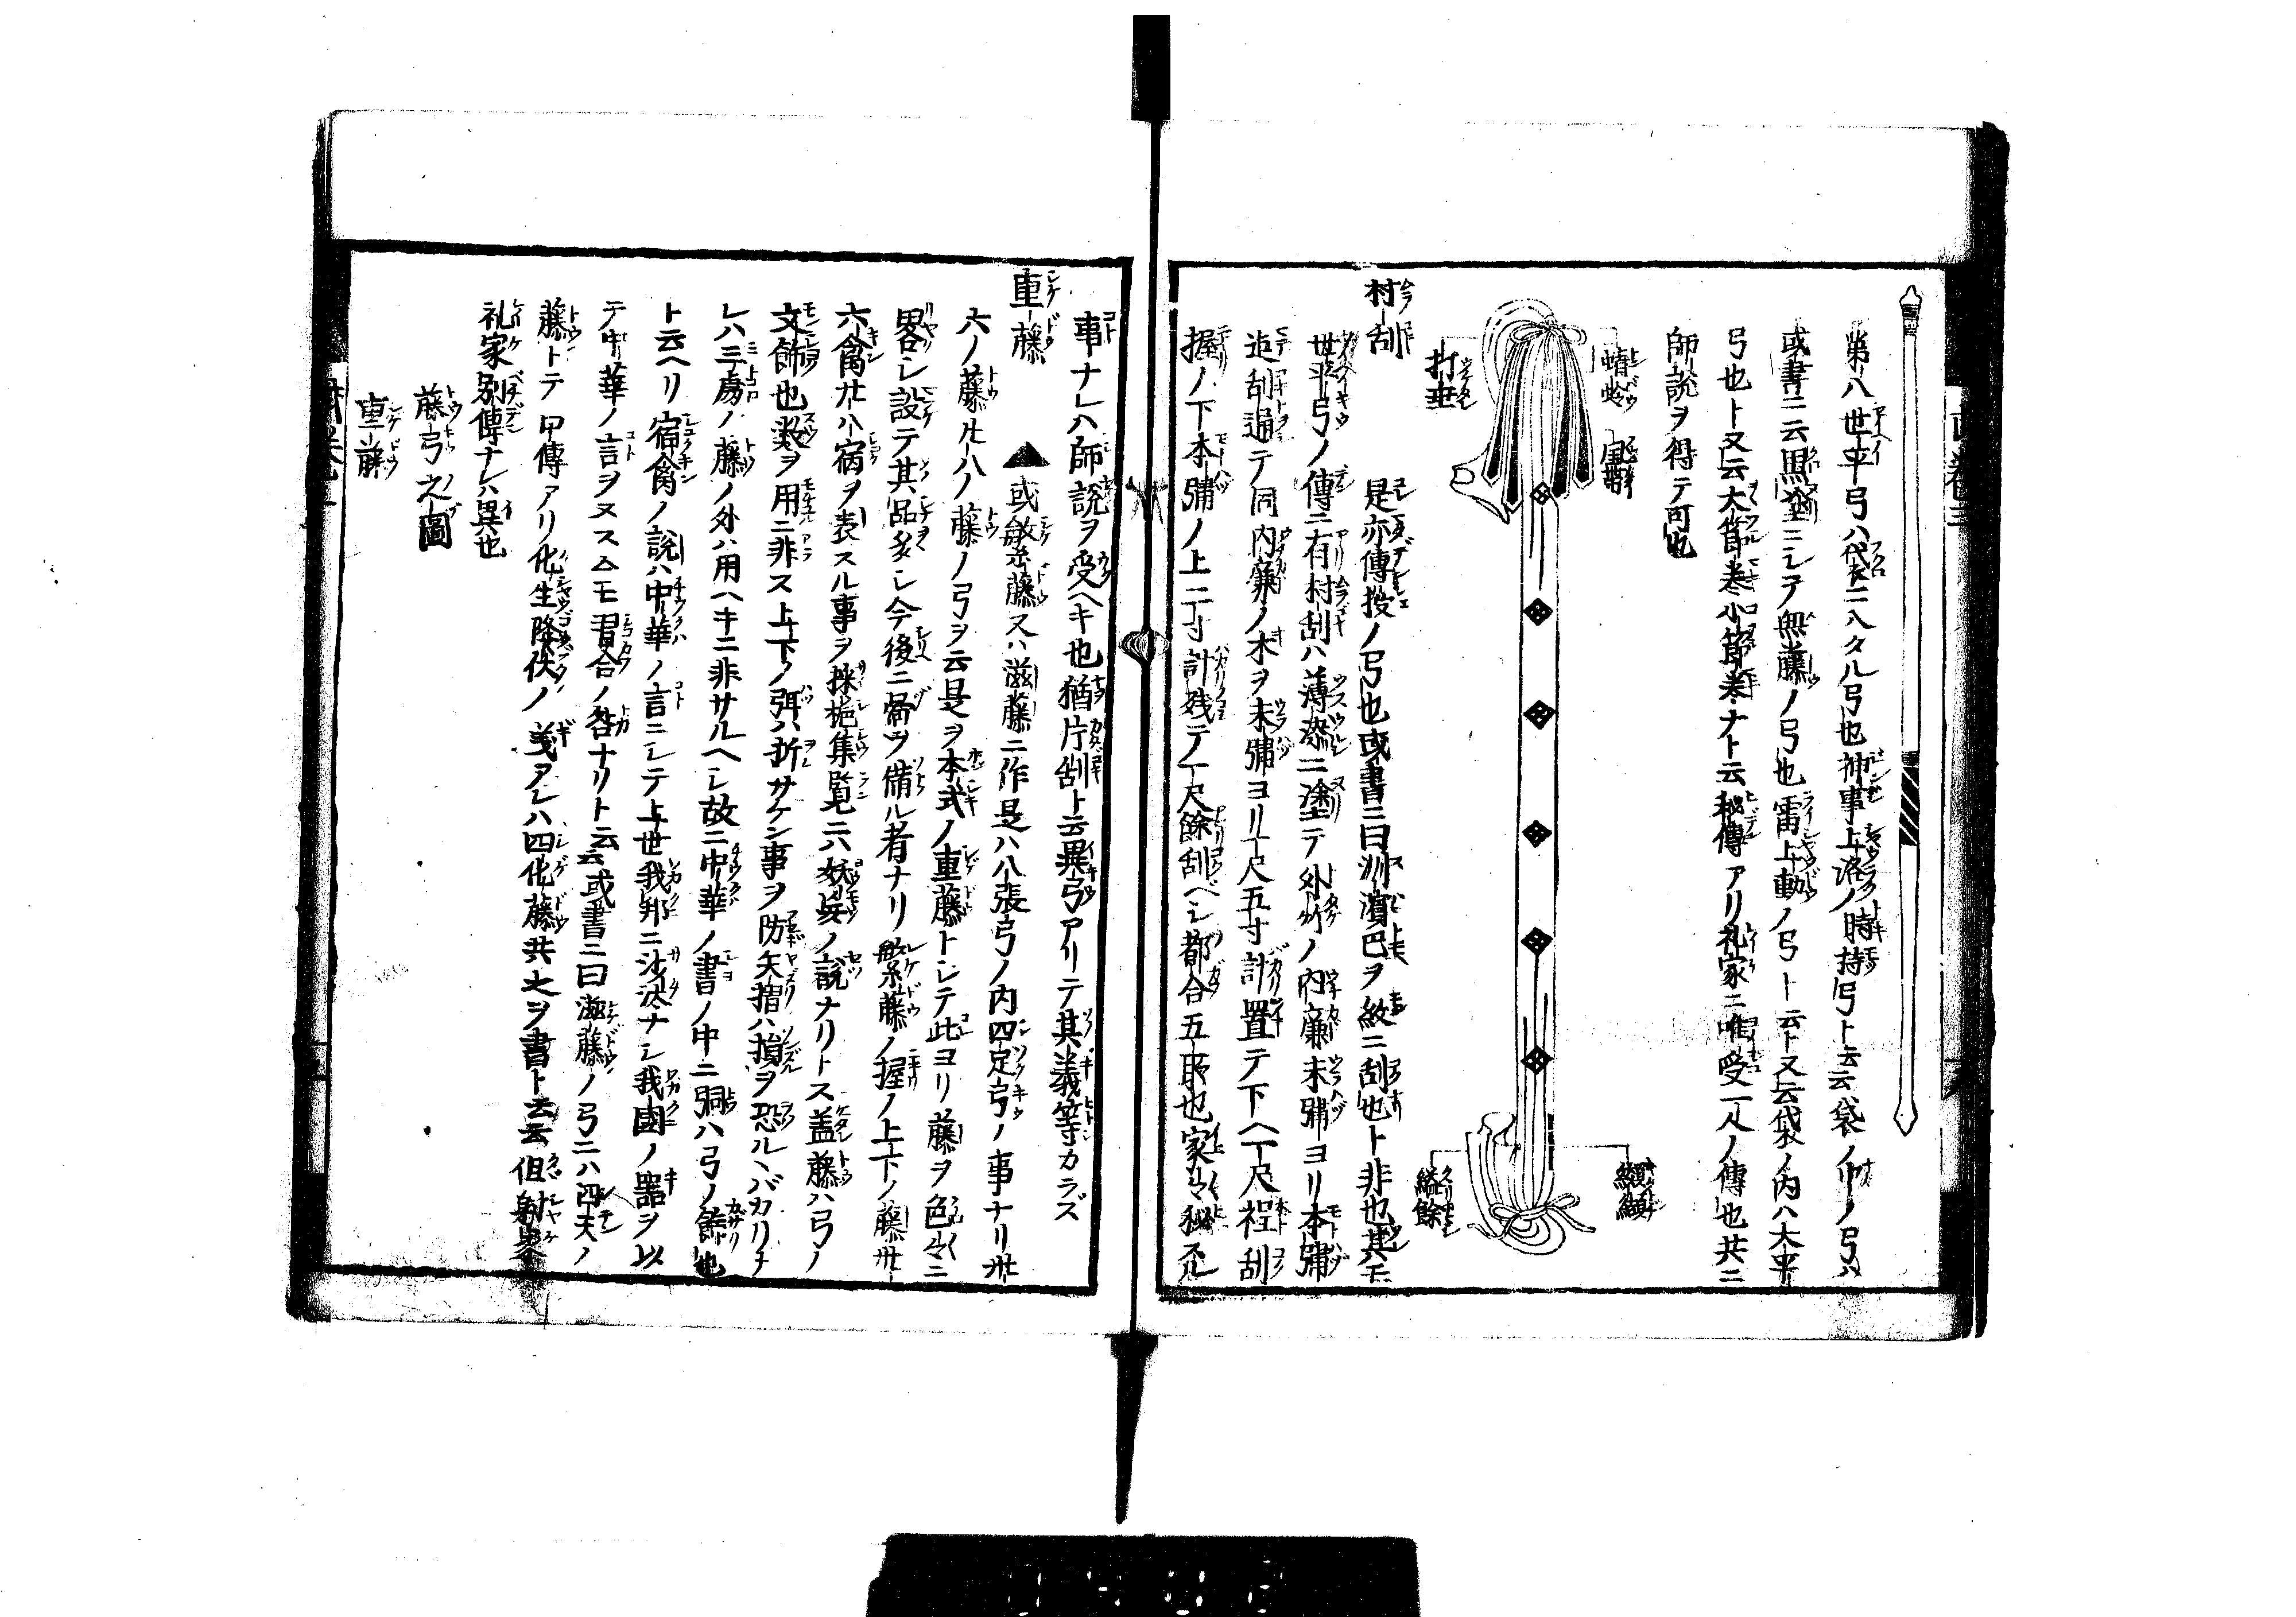 第八世平弓ハ袋ニ入タル弓也神事上洛ノ時持弓ト云云袋ノ中ノ弓ハ
或書ニ云黒塗ニシテ無藤ノ弓也雷上動ノ弓ト云ト又云袋ノ内ハ太平
弓也ト又云大節巻小節巻ナト云秘傳アリ礼家ニ唯受一人ノ傳也共ニ
師説ヲ得テ可也
蜻蛉
打垂
縊餘
村刮
是亦傳授ノ弓也或書ニ曰洲濱巴ヲ紋ニ刮也ト非也其モ
世平弓ノ傳ニ有村刮ハ薄漆ニ塗テ外竹ノ內廉末弭ヨリ本弭
迠刮通テ同內廉ノ木ヲ末弭ヨリ一尺五寸計置テ下ヘ一尺程刮
握ノ下本弭ノ上二寸計残テ一尺餘刮ベシ都合五取也家々秘スル
事ナレハ師說ヲ受ヘキ也猶片刮ト云異弓アリテ其義等カラズ
重藤
▲或繁藤又ハ滋藤ニ作是ハ八張弓ノ内四定弓ノ事ナリ卅
六ノ藤廿八ノ藤ノ弓ヲ云是ヲ本式ノ重藤トシテ此ヨリ藤ヲ色々ニ
畧シ設テ其品多シ今後ニ備ル者ナリ繁藤ノ握ノ上下ノ藤卅
六禽廿八宿ヲ表スル事ヲ採摭集覧ニ六妖兵ノ說ナリトス蓋藤ハ弓ノ
文飾也数ヲ用ニ非ス上下ノ弭ハ折サケン事ヲ防矢摺ハ損ヲ恐ルヽバカリナ
レハ三處ノ藤ノ外ハ用ヘキニ非サルヘシ故ニ中華ノ書ノ中ニ弭ハ弓ノ餝也
ト云ヘリ宿禽ノ說ハ中華ノ言ニシテ上世我邦ニ沙汰ナシ我國ノ器ヲ以
テ中華ノ言ヲヌスムモ習合ノ咎ナリト云云或書ニ曰滋藤ノ弓ニハ四天ノ
藤トテ甲傳アリ化生降伏ノ義アレハ四化藤共之ヲ書ト云云但射家
礼家別傳ナレハ異也
藤弓之圖
重藤